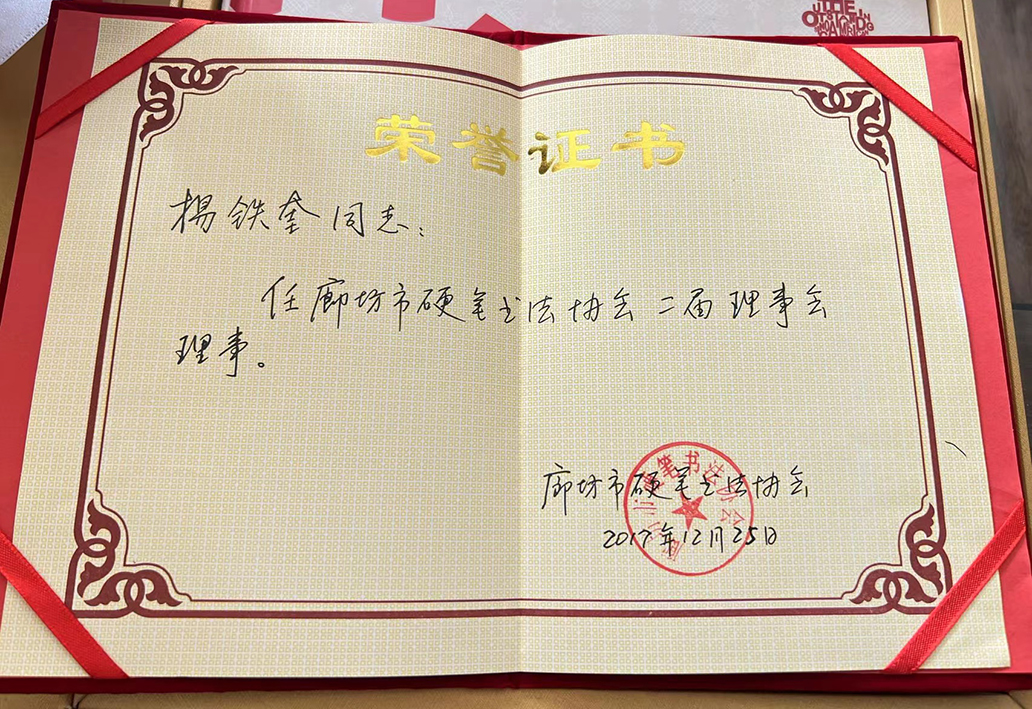 荣誉证书
杨铁奎同志：
任廊坊市硬笔书法协会二届理事会
理事。
廊坊市硬笔书法协会
2017年12月25日
廊坊市硬笔书法协会